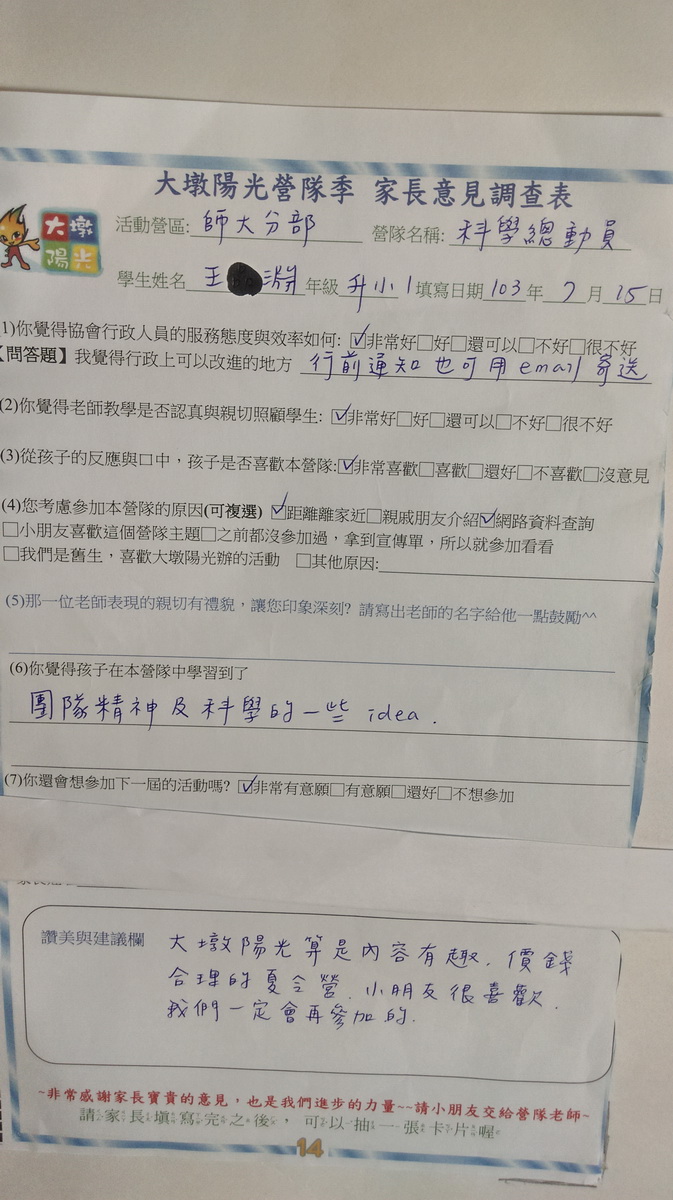 大墩陽光營隊季 家長意見調查表
大墩
陽光
活動營區: 師大分部 營隊名稱: 科學總動員
學生姓名 王 淵 年級 升小1 填寫日期 103 年 7 月 15 日
1)你覺得協會行政人員的服務態度與效率如何: ☑非常好□好□還可以□不好□很不好
【問答題】我覺得行政上可以改進的地方 行前通知也可用email寄送
(2)你覺得老師教學是否認真與親切照顧學生: ☑非常好□好□還可以□不好□很不好
(3)從孩子的反應與口中，孩子是否喜歡本營隊:☑非常喜歡□喜歡□還好□不喜歡□沒意見
(4)您考慮參加本營隊的原因(可複選) ☑距離離家近□親戚朋友介紹☑網路資料查詢
□小朋友喜歡這個營隊主題□之前都沒參加過，拿到宣傳單，所以就參加看看
□我們是舊生，喜歡大墩陽光辦的活動 □其他原因:
(5)那一位老師表現的親切有禮貌，讓您印象深刻? 請寫出老師的名字給他一點鼓勵^^
(6)你覺得孩子在本營隊中學習到了
團隊精神及科學的一些 idea.
(7)你還會想參加下一屆的活動嗎? ☑非常有意願□有意願□還好□不想參加
讚美與建議欄 大墩陽光算是內容有趣. 價錢
合理的夏令營. 小朋友很喜歡.
我們一定會再參加的.
~非常感謝家長寶貴的意見，也是我們進步的力量~~請小朋友交給營隊老師~
請家長填寫完之後，可以抽一張卡片喔
14